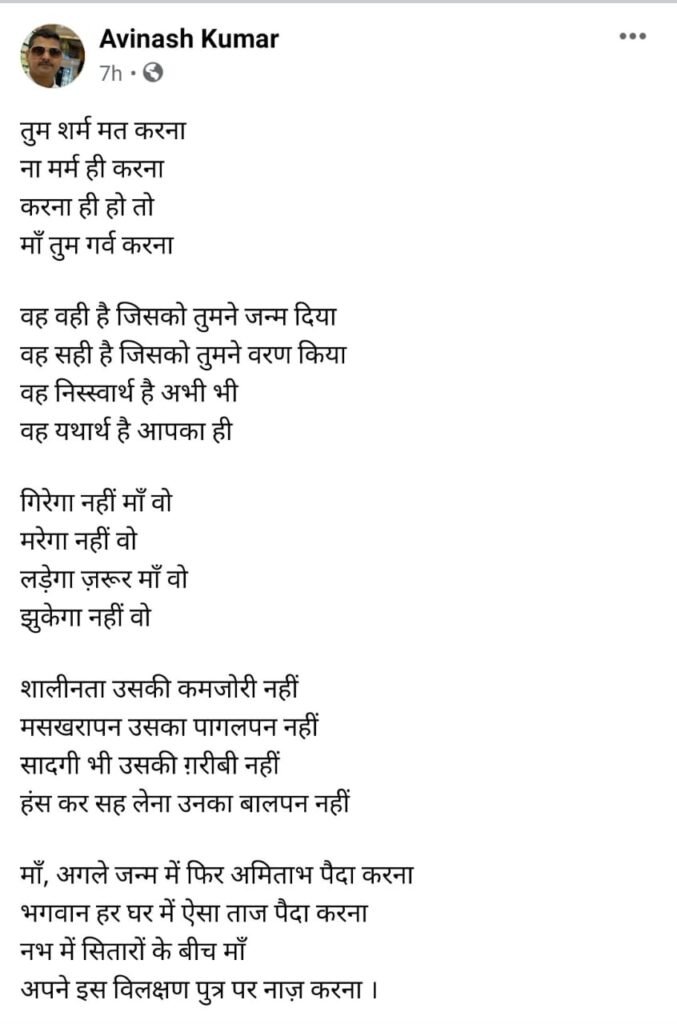 Avinash Kumar
7h
तुम शर्म मत करना
ना मर्म ही करना
करना ही हो तो
माँ तुम गर्व करना
वह वही है जिसको तुमने जन्म दिया
वह सही है जिसको तुमने वरण किया
वह निस्स्वार्थ है अभी भी
वह यथार्थ है आपका ही
गिरेगा नहीं माँ वो
मरेगा नहीं वो
लड़ेगा ज़रूर माँ वो
झुकेगा नहीं वो
शालीनता उसकी कमजोरी नहीं
मसखरापन उसका पागलपन नहीं
सादगी भी उसकी ग़रीबी नहीं
हंस कर सह लेना उनका बालपन नहीं
माँ, अगले जन्म में फिर अमिताभ पैदा करना
भगवान हर घर में ऐसा ताज पैदा करना
नभ में सितारों के बीच माँ
अपने इस विलक्षण पुत्र पर नाज़ करना ।